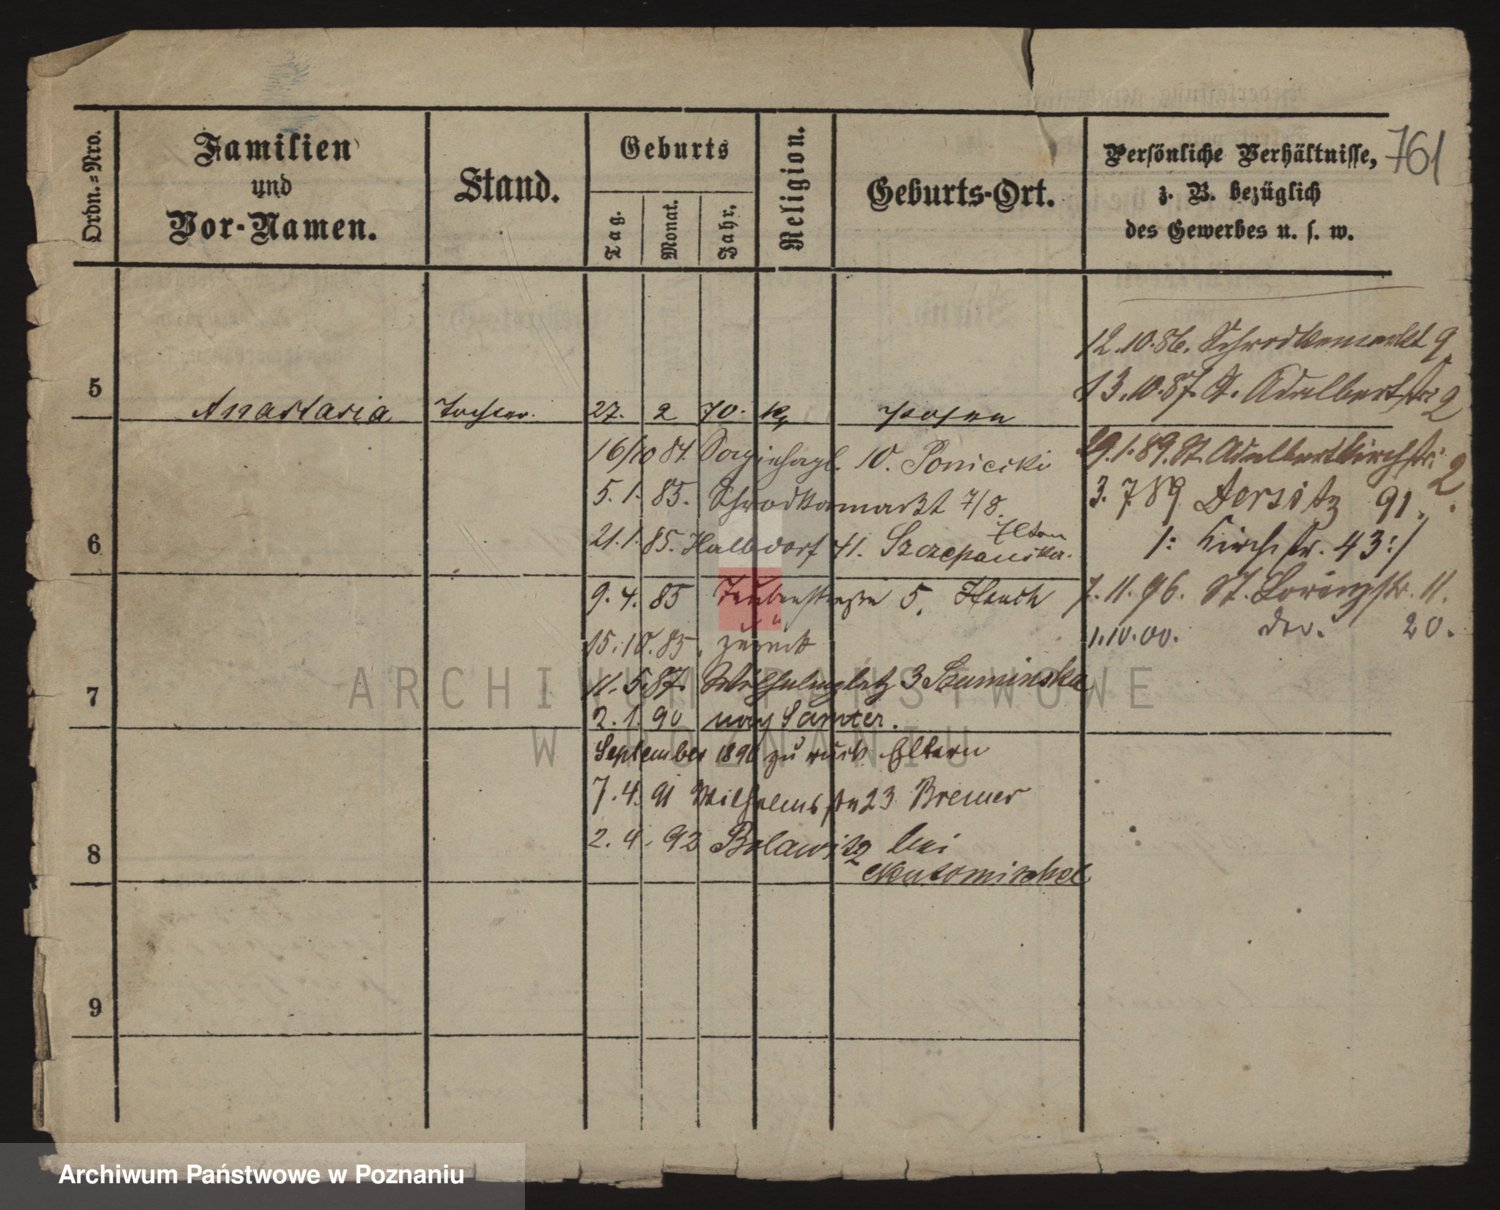 761
Ordn.-Nro.
Familien
und
Vor-Namen.
Stand.
Geburts
Tag.
Monat.
Jahr.
Religion.
Geburts-Ort.
Persönliche Verhältnisse,
z. B. bezüglich
des Gewerbes u. s. w.
12.10.86. Schrodkamarkt 9
13.10.87. St. Adalbertstr 2
5
Anastasia Tochter. 27. 2 70. K. Posen
16/10 84. 10. Poniecki
29.1.89. St. Adalbertkirchstr. 2
5. 1. 85. Schrodkamarkt 7/8.
3. 7 89 Jersitz 91.
6
21. 1. 85. Halbdorf 41. Szczepanska. Eltern
/: Kirchstr. 43 :/
9. 4. 85 5.
7. 11. 96. St. 11.
15. 10. 85. zurück
1.10.00. do. 20.
7
11. 5. 87. Wilhelmplatz 3 Kaminska
2. 1. 90 nach Samter.
September 1890 zurück Eltern
7. 4. 91 Wilhelmstr 23 Bremer
8
2. 4. 92 bei
Neutomischel
9
ARCHIWUM PAŃSTWOWE
W POZNANIU
Archiwum Państwowe w Poznaniu